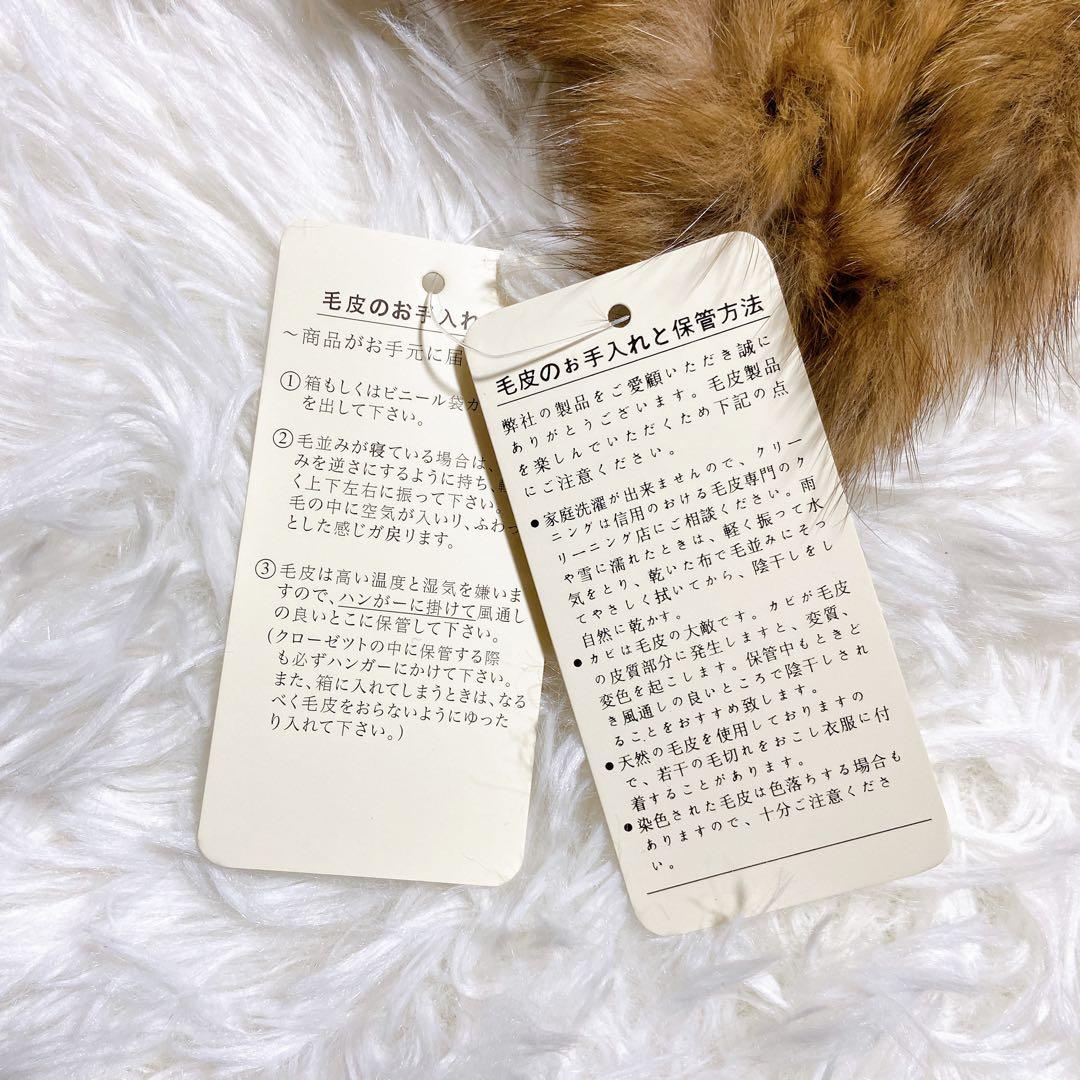 毛皮のお手入れ
～商品がお手元に届
①箱もしくはビニール袋か
を出して下さい。
②毛並みが寝ている場合は、
みを逆さにするように持ち、軽
く上下左右に振って下さい。
毛の中に空気が入いり、ふわっ
とした感じガ戻ります。
③毛皮は高い温度と湿気を嫌いま
すので、ハンガーに掛けて風通し
の良いとこに保管して下さい。
(クローゼットの中に保管する際
も必ずハンガーにかけて下さい。
また、箱に入れてしまうときは、なる
べく毛皮をおらないようにゆった
り入れて下さい。)
毛皮のお手入れと保管方法
弊社の製品をご愛顧いただき誠に
ありがとうございます。毛皮製品
を楽しんでいただくため下記の点
にご注意ください。
●家庭洗濯が出来ませんので、クリー
ニングは信用のおける毛皮専門のク
リーニング店にご相談ください。雨
や雪に濡れたときは、軽く振って水
気をとり、乾いた布で毛並みにそっ
てやさしく拭いてから、陰干しをし
自然に乾かす。
●カビは毛皮の大敵です。カビが毛皮
の皮質部分に発生しますと、変質、
変色を起こします。保管中もときど
き風通しの良いところで陰干しされ
ることをおすすめ致します。
●天然の毛皮を使用しておりますの
で、若干の毛切れをおこし衣服に付
着することがあります。
●染色された毛皮は色落ちする場合も
ありますので、十分ご注意くださ
い。